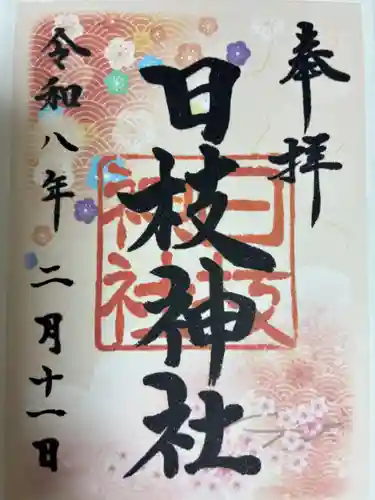 奉拝
日枝神社
日枝神社
令和八年二月十一日